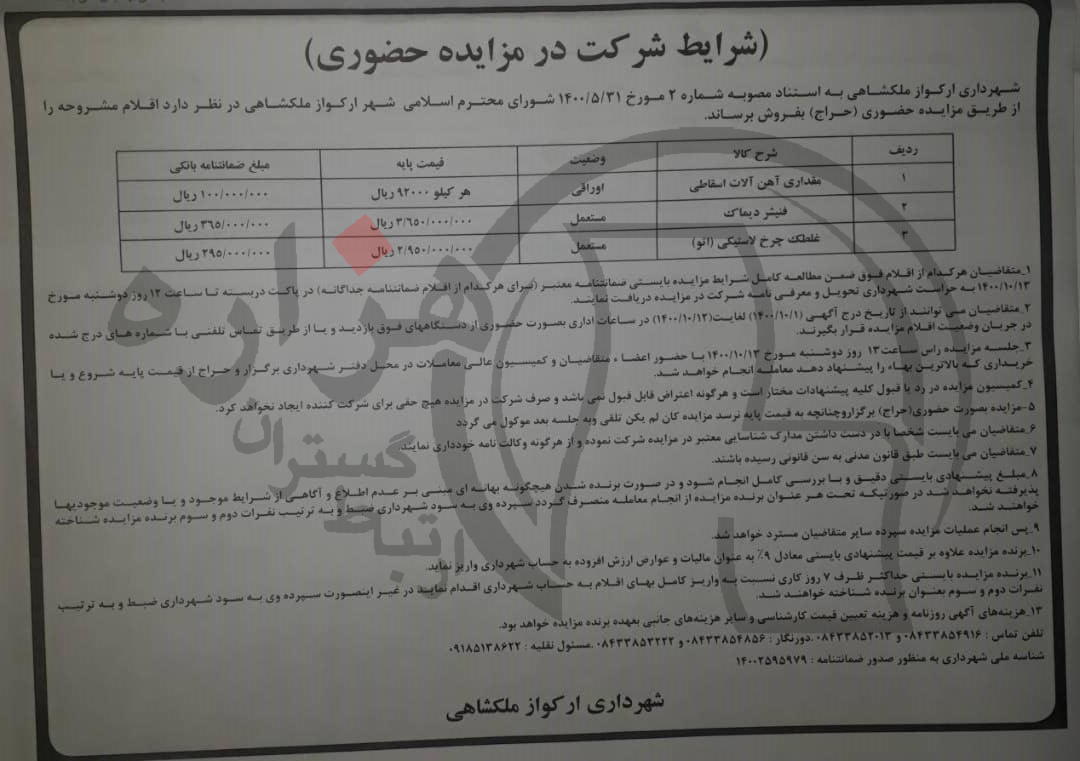 (شرایط شرکت در مزایده حضوری)
شهرداری ارکواز ملکشاهی به استناد مصوبه شماره ۲ مورخ ۱۴۰۰/۵/۳۱ شورای محترم اسلامی شهر ارکواز ملکشاهی در نظر دارد اقلام مشروحه را
از طریق مزایده حضوری (حراج) بفروش برساند.
ردیف شرح کالا وضعیت قیمت پایه مبلغ ضمانتنامه بانکی
۱ مقداری آهن آلات اسقاطی اوراقی هر کیلو ۹۲۰۰۰ ریال ۱۰۰/۰۰۰/۰۰۰ ریال
۲ فنیشر دیماک مستعمل ۳/۶۵۰/۰۰۰/۰۰۰ ریال ۳۶۵/۰۰۰/۰۰۰ ریال
۳ غلطک چرخ لاستیکی (اتو) مستعمل ۲/۹۵۰/۰۰۰/۰۰۰ ریال ۲۹۵/۰۰۰/۰۰۰ ریال
۱_متقاضیان هرکدام از اقلام فوق ضمن مطالعه کامل شرایط مزایده بایستی ضمانتنامه معتبر (برای هرکدام از اقلام ضمانتنامه جداگانه) در پاکت دربسته تا ساعت ۱۲ روز دوشنبه مورخ
۱۴۰۰/۱۰/۱۳ به حراست شهرداری تحویل و معرفی نامه شرکت در مزایده دریافت نمایند.
۲_متقاضیان می توانند از تاریخ درج آگهی (۱۴۰۰/۱۰/۱) لغایت(۱۴۰۰/۱۰/۱۲) در ساعات اداری بصورت حضوری از دستگاههای فوق بازدید و یا از طریق تماس تلفنی با شماره های درج شده
در جریان وضعیت اقلام مزایده قرار بگیرند.
۳_جلسه مزایده راس ساعت۱۳ روز دوشنبه مورخ ۱۴۰۰/۱۰/۱۳ با حضور اعضاء ، متقاضیان و کمیسیون عالی معاملات در محل دفتر شهرداری برگزار و حراج از قیمت پایه شروع و یا
خریداری که بالاترین بهاء را پیشنهاد دهد معامله انجام خواهد شد.
۴_کمیسیون مزایده در رد یا قبول کلیه پیشنهادات مختار است و هرگونه اعتراض قابل قبول نمی باشد و صرف شرکت در مزایده هیچ حقی برای شرکت کننده ایجاد نخواهد کرد.
۵-مزایده بصورت حضوری(حراج) برگزاروچنانچه به قیمت پایه نرسد مزایده کان لم یکن تلقی وبه جلسه بعد موکول می گردد
۶_متقاضیان می بایست شخصا با در دست داشتن مدارک شناسایی معتبر در مزایده شرکت نموده و از هرگونه وکالت نامه خودداری نمایند.
۷_متقاضیان می بایست طبق قانون مدنی به سن قانونی رسیده باشند.
۸_مبلغ پیشنهادی بایستی دقیق و با بررسی کامل انجام شود و در صورت برنده شدن هیچگونه بهانه ای مبنی بر عدم اطلاع و آگاهی از شرایط موجود و یا وضعیت موجودیها
پذیرفته نخواهد شد در صورتیکه تحت هر عنوان برنده مزایده از انجام معامله منصرف گردد سپرده وی به سود شهرداری ضبط و به ترتیب نفرات دوم و سوم برنده مزایده شناخته
خواهند شد.
۹_پس انجام عملیات مزایده سپرده سایر متقاضیان مسترد خواهد شد.
۱۰_برنده مزایده علاوه بر قیمت پیشنهادی بایستی معادل ۹٪ به عنوان مالیات و عوارض ارزش افزوده به حساب شهرداری واریز نماید.
۱۱_برنده مزایده بایستی حداکثر ظرف ۷ روز کاری نسبت به واریز کامل بهای اقلام به حساب شهرداری اقدام نماید در غیر اینصورت سپرده وی به سود شهرداری ضبط و به ترتیب
نفرات دوم و سوم بعنوان برنده شناخته خواهند شد.
۱۳_هزینه‌های آگهی روزنامه و هزینه تعیین قیمت کارشناسی و سایر هزینه‌های جانبی بعهده برنده مزایده خواهد بود.
تلفن تماس : ۰۸۴۳۳۸۵۴۹۱۶ و ۰۸۴۳۳۸۵۲۰۱۳ .دورنگار : ۰۸۴۳۳۸۵۴۸۵۶ و ۰۸۴۳۳۸۵۳۲۲۲ .مسئول نقلیه : ۰۹۱۸۵۱۳۸۶۲۲
شناسه ملی شهرداری به منظور صدور ضمانتنامه : ۱۴۰۰۲۵۹۵۹۷۹
شهرداری ارکواز ملکشاهی
هزاره
گستران
ارتباط